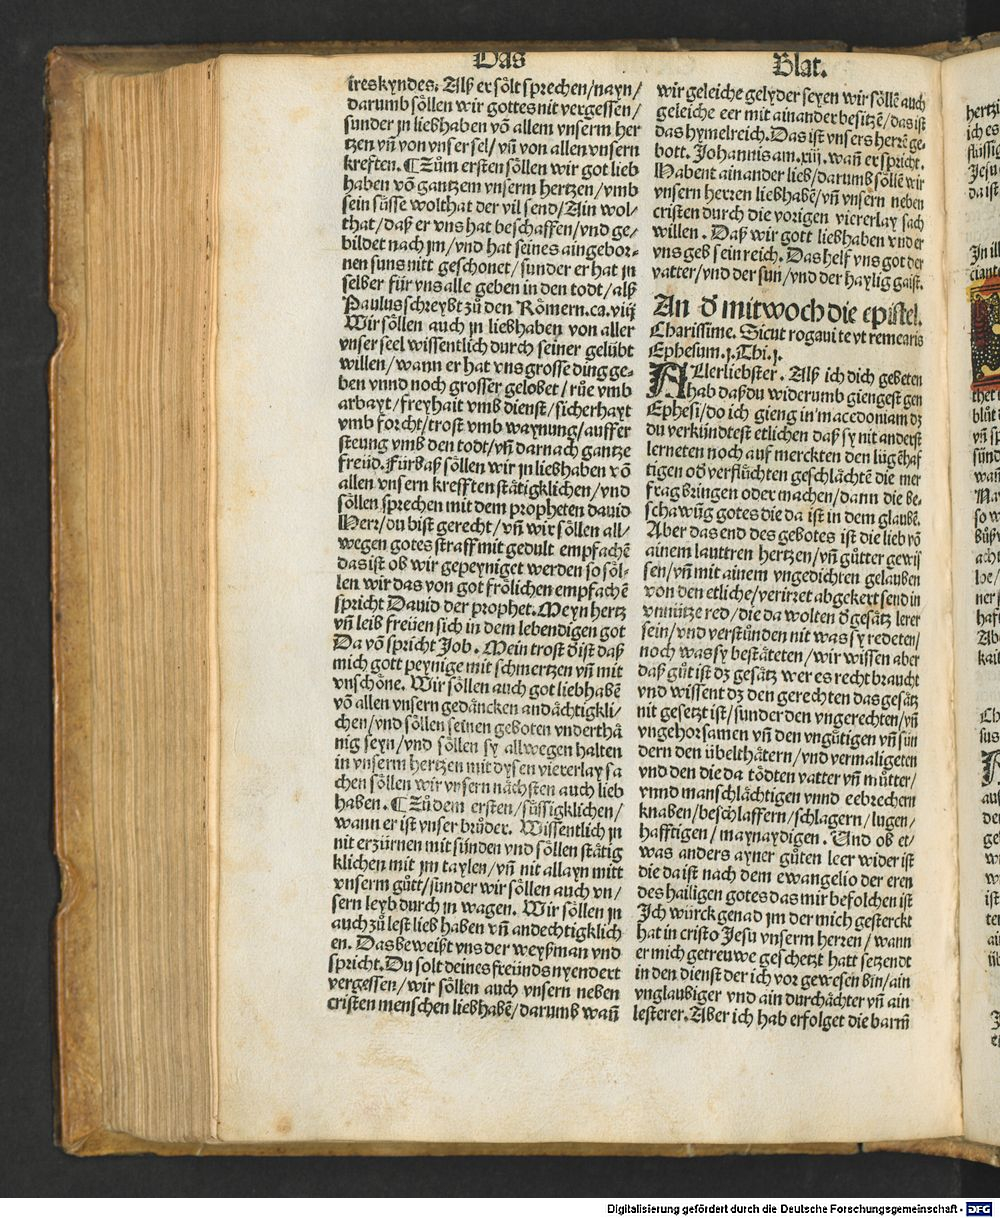 Das
ireskyndes: Alß er sölt sprechen/nayn/
darumb söllen wir gottes nit vergessen/
sunder jn liebhaben võ allem vnserm her
tzen vñ von vnser sel/ vñ von allen vnsern
kreften. ¶ Zům ersten söllen wir got lieb
haben võ gantzem vnserm hertzen/vmb
sein süsse wolthat der vil send/Ain wol-
that/daß er vns hat beschaffen/vnd ge-
bildet nach jm/vnd hat seines aingebor-
nen suns nitt geschonet/sunder er hat jn
selber für vns alle geben in den todt/alß
Paulus schreybt zů den Römern.ca.viij
Wir söllen auch jn liebhaben von aller
vnser seel wissentlich durch seiner gelübt
willen/wann er hat vns grosse ding ge-
ben vnnd noch grosser gelobet/růe vmb
arbayt/freyhait vmb dienst/sicherhayt
vmb forcht/trost vmb waynung/auffer
steung vmb den todt/vñ darnach gantze
freüd. Fürbaß söllen wir jn liebhaben võ
allen vnsern krefften stätigklichen/vnd
söllen sprechen mit dem propheten dauid
Herr/du bist gerecht/vñ wir söllen all-
wegen gotes straff mit gedult empfachẽ
das ist ob wir gepeyniget werden so söl-
len wir das von got frölichen empfachẽ
spricht Dauid der prophet. Meyn hertz
vñ leib freüen sich in dem lebendigen got
Da võ spricht Job. Mein trost d̕ ist daß
mich gott peynige mit schmertzen vñ mit
vnschöne. Wir söllen auch got liebhabẽ
võ allen vnsern gedäncken andächtigkli-
chen/vnd söllen seinen geboten vnderthå
nig seyn/vnd söllen sy allwegen halten
in vnserm hertzen mit dysen viererlay sa
chen söllen wir vnsern nächsten auch lieb
haben. ¶ Zů dem ersten/süssigklichen/
wann er ist vnser brůder. Wissentlich jn
nit erzürnen mit sünden vnd söllen stätig
klichen mit jm taylen/vñ nit allayn mitt
vnserm gůtt/sunder wir söllen auch vn/
sern leyb durch jn wagen. Wir söllen jn
auch zů lest lieb haben vñ andechtigklich
en. Das beweißt vns der weyßman vnd
spricht. Du solt deines freünds nyendert
vergessen/wir söllen auch vnsern neben
cristen menschen liebhabẽ/darumb wañ
Blat.
wir geleiche gelyder seyen wir söllẽ auch
geleiche eer mit ainander besitzẽ/das ist
das hymelreich. Das ist vnsers herrẽ ge-
bott. Johannis am.xiij. wañ er spricht.
Habent ainander lieb/darumb söllẽ wir
vnsern herren liebhabẽ/vñ vnsern neben
cristen durch die vorigen viererlay sach
willen. Daß wir gott liebhaben vnd er
vns geb sein reich. Das helf vns got der
vatter/vnd der sun/vnd der haylig gaist.
An d̕ mitwoch die epistel.
Charissime. Sicut rogaui te vt remearis
Ephesum.j.Thi.j.
ALlerliebster. Alß ich dich gebeten
hab daß du widerumb giengest gen
Ephesi/do ich gieng in macedoniam dz
du verkündtest etlichen daß sy nit anderst
lerneten noch auf merckten den lügẽhaf
tigen od̕ verflůchten geschlächtẽ die mer
frag bringen oder machen/dann die be-
schawũg gotes die da ist in dem glaubẽ.
Aber das end des gebotes ist die lieb võ
ainem lauttren hertzen/vñ gůtter gewis
sen/vñ mit ainem vngedichten gelauben
von den etliche/verirret abgekert send in
vnnütze red/die da wolten d̕ gesätz lerer
sein/vnd verstůnden nit was sy redeten/
noch was sy bestäteten/wir wissen aber
daß gůt ist dz gesätz wer es recht braucht
vnd wissent dz den gerechten das gesätz
nit gesetzt ist/sunder den vngerechten/vñ
vngehorsamen vñ den vngůtigen vñ sün
dern den übelthätern/vnd vermaligeten
vnd den die da tödten vatter vñ můtter/
vnnd manschlächtigen vnnd eebrechern
knaben/beschlaffern/schlagern/lugen/
hafftigen/maynaydigen. Und ob et-
was anders ayner gůten leer wider ist
die da ist nach dem ewangelio der eren
des hailigen gotes das mir befolchen ist
Ich würck genad jm der mich gesterckt
hat in cristo Jesu vnserm herren/wann
er mich getreuwe geschetzt hatt setzendt
in den dienst der ich vor gewesen bin/ain
vnglaubiger vnd ain durchächter vñ ain
lesterer. Aber ich hab erfolget die barm̃
Digitalisierung gefördert durch die Deutsche Forschungsgemeinschaft - DFG